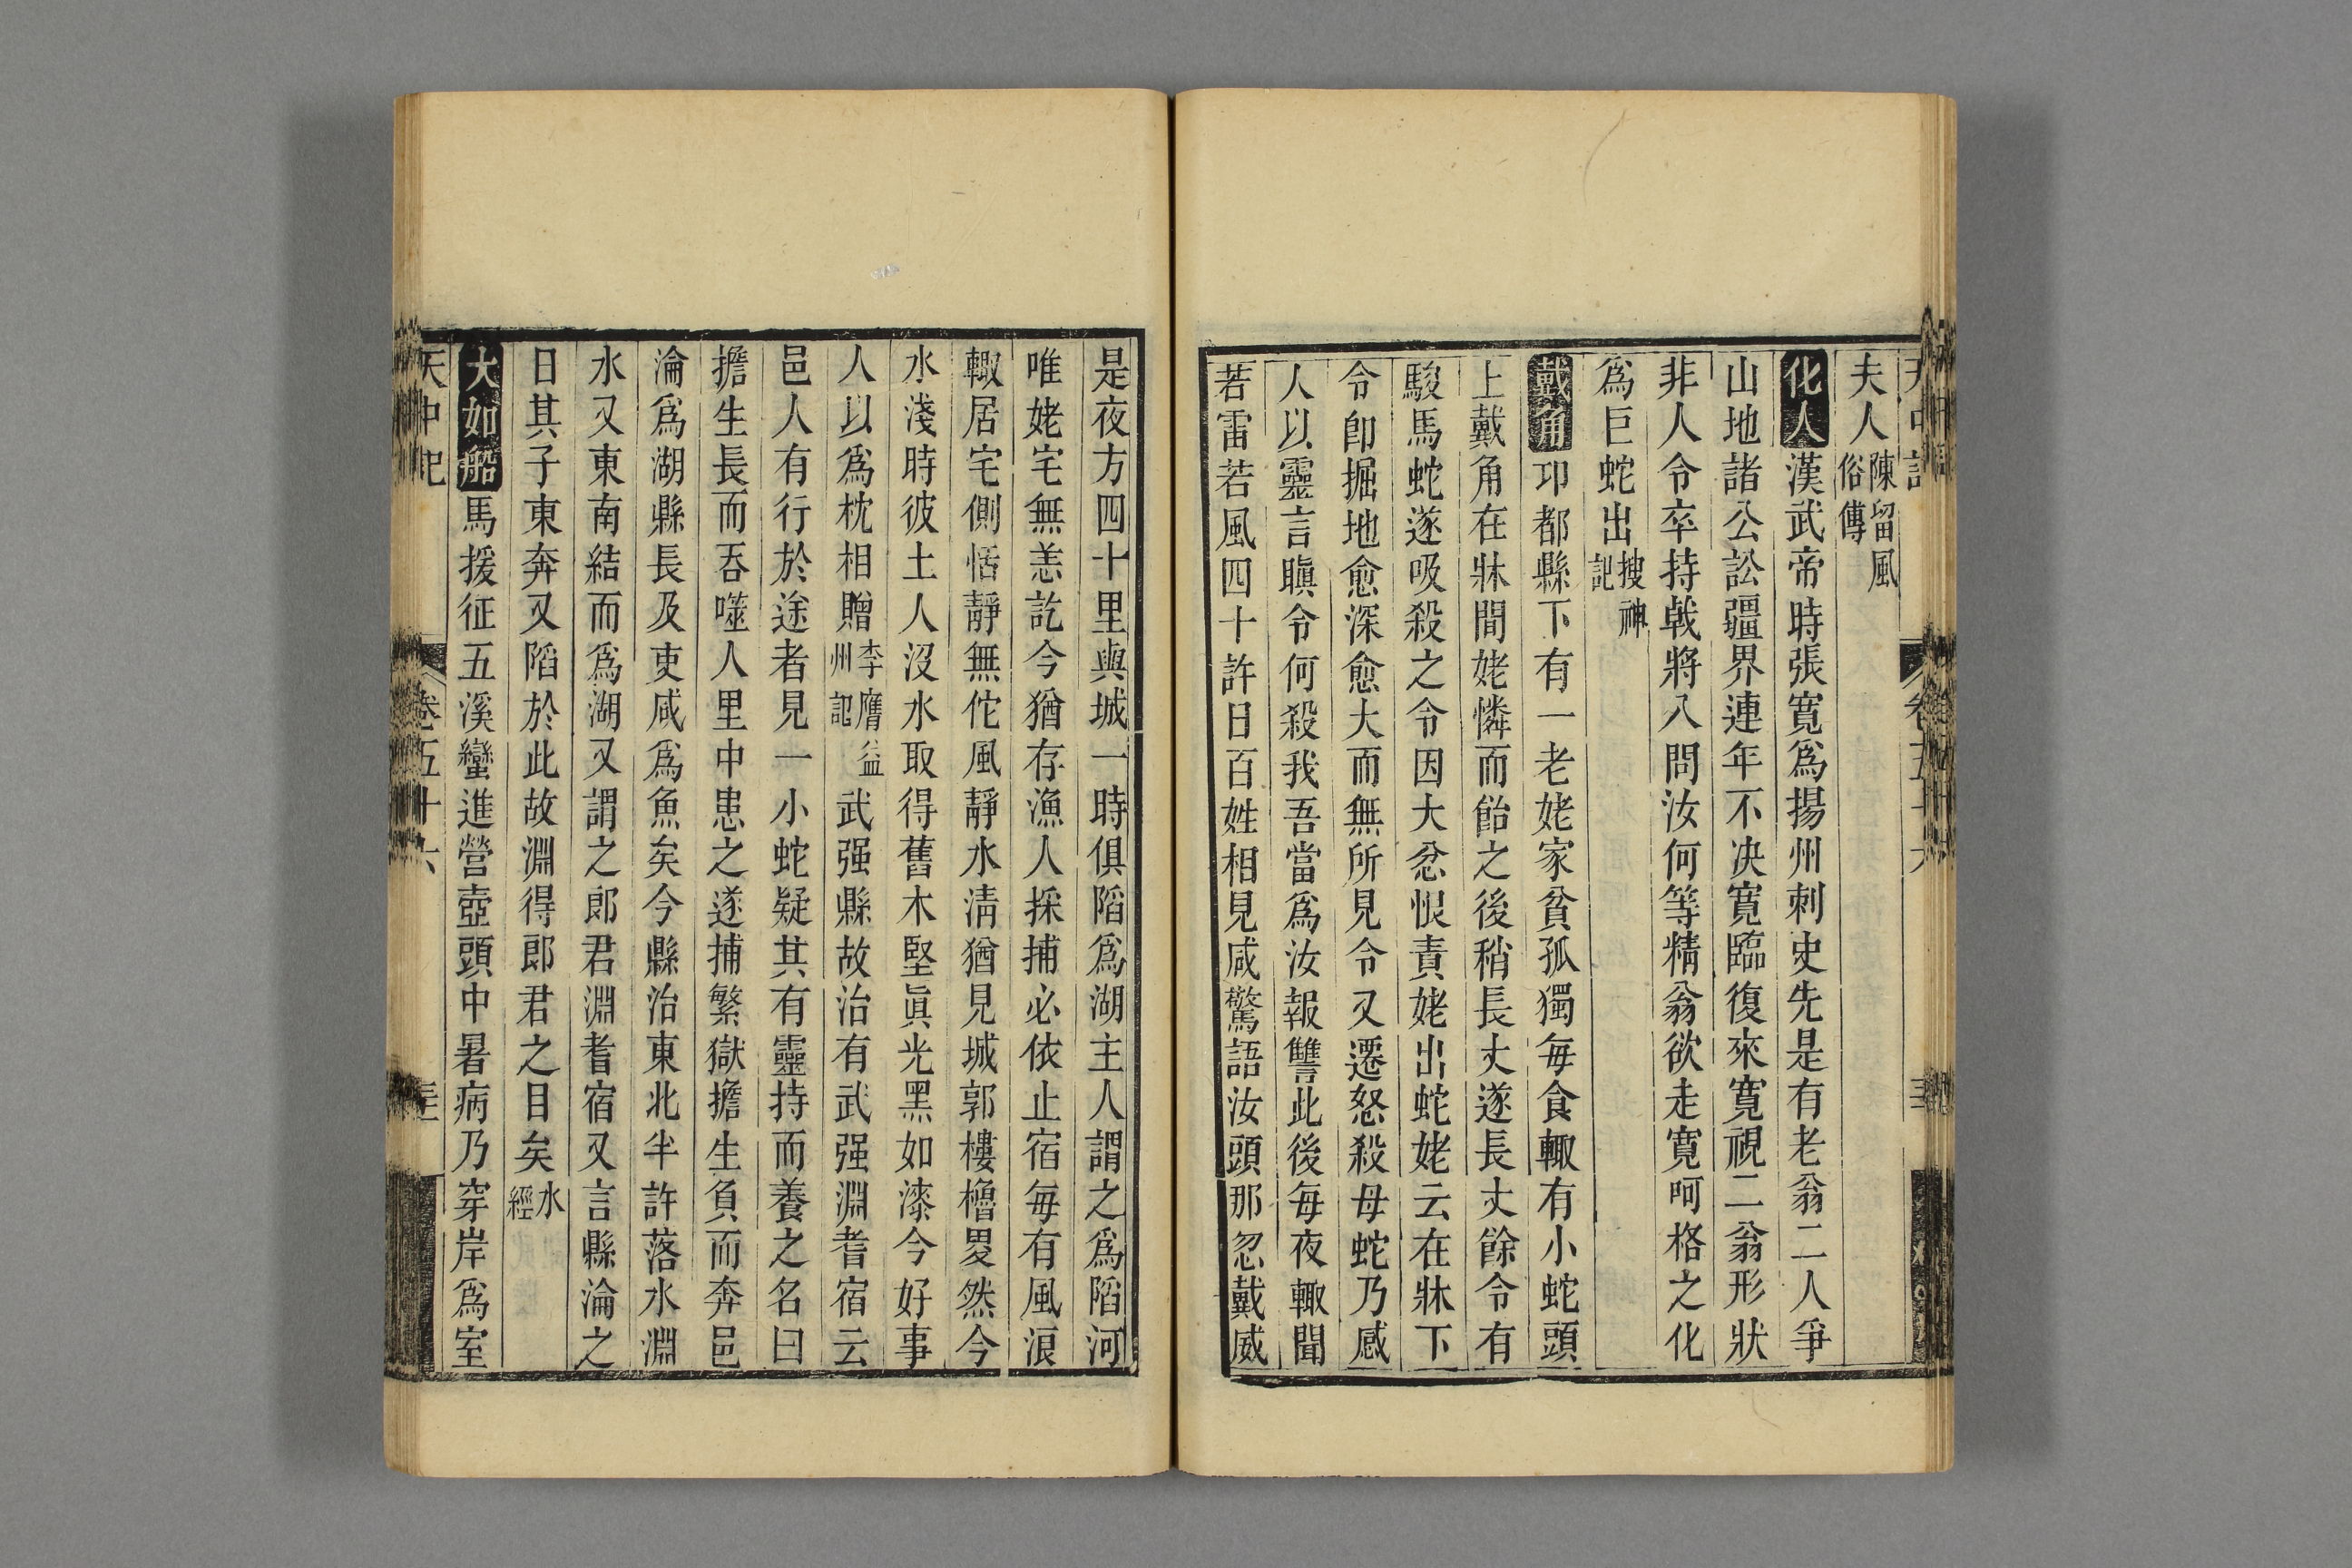 夫人陳留風俗傳
化人漢武帝時張寬爲揚州刺史先是有老翁二人爭
山地諸公訟疆界連年不决寬臨復來寬視二翁形狀
非人令卒持戟將入問汝何等精翁欲走寬呵格之化
爲巨蛇出搜神記
戴角邛都縣下有一老姥家貧孤獨每食輙有小蛇頭
上戴角在牀間姥憐而飴之後稍長丈遂長丈餘令有
駿馬蛇遂吸殺之令因大忿恨責姥出蛇姥云在牀下
令卽掘地愈深愈大而無所見令又遷怒殺母蛇乃感
人以靈言瞋令何殺我吾當爲汝報讐此後每夜輙聞
若雷若風四十許日百姓相見咸驚語汝頭那忽戴威
是夜方四十里與城一時俱陷爲湖主人謂之爲陷河
唯姥宅無恙訖今猶存漁人採捕必依止宿每有風浪
輙居宅側恬靜無佗風靜水淸猶見城郭樓櫓畟然今
水淺時彼土人沒水取得舊木堅眞光黑如漆今好事
人以爲枕相贈李膺益州記武强縣故治有武强淵耆宿云
邑人有行於途者見一小蛇疑其有靈持而養之名曰
擔生長而吞噬人里中患之遂捕繫獄擔生負而奔邑
淪爲湖縣長及吏咸爲魚矣今縣治東北半許落水淵
水又東南結而爲湖又謂之郎君淵耆宿又言縣淪之
日其子東奔又陷於此故淵得郎君之目矣水經
大如船馬援征五溪蠻進營壺頭中暑病乃穿岸爲室
天中記 卷五十六